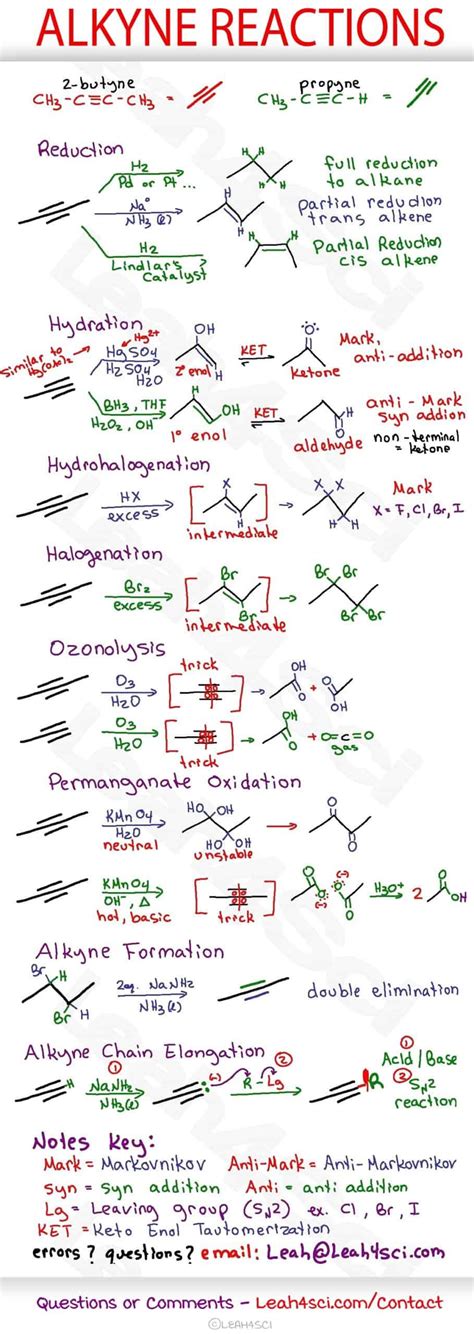 ALKYNE REACTIONS
2-butyne
CH₃-C≡C-CH₃ =
propyne
CH₃-C≡C-H =
Reduction
H₂
Pd or Pt ...
H H
H H
full reduction
to alkane
Na°
NH₃ (ℓ)
H
H
partial reduction
trans alkene
H₂
Lindlar's
Catalyst
?
H H
Partial Reduction
cis alkene
Hydration
Similar to
Hg(OAc)₂
Hg²⁺
HgSO₄
H₂SO₄
H₂O
OH
H
2° enol
KET
:O:
ketone
Mark,
anti-addition
BH₃, THF
H₂O₂, OH⁻
H
OH
1° enol
KET
H
O
aldehyde
anti-Mark
syn addion
non-terminal
= ketone
Hydrohalogenation
HX
excess
X
H
intermediate
X X
H H
Mark
X = F, Cl, Br, I
Halogenation
Br₂
excess
Br
Br
intermediate
Br Br
Br Br
Ozonolysis
O₃
H₂O
trick
OH
O
+
O
OH
O₃
H₂O
trick
OH
O
+ O=C=O
gas
Permanganate Oxidation
KMnO₄
H₂O
neutral
HO OH
HO OH
unstable
O
O
KMnO₄
OH⁻, Δ
hot, basic
trick
O
O
(-)
(-)
H₃O⁺
2
O
OH
Alkyne Formation
Br H
Br H
2eq. NaNH₂
NH₃(ℓ)
double elimination
Alkyne Chain Elongation
H
①
NaNH₂
NH₃(ℓ)
(-)
②
R-Lg
R
① Acid/Base
② SN2
reaction
Notes Key:
Mark = Markovnikov Anti-Mark = Anti-Markovnikov
Syn = Syn addition Anti = anti addition
Lg = Leaving group (SN2) ex. Cl, Br, I
KET = Keto Enol Tautomerization
errors? questions? email: Leah@Leah4sci.com
Questions or Comments - Leah4sci.com/Contact
©LEAH4SCI
Leah4sci